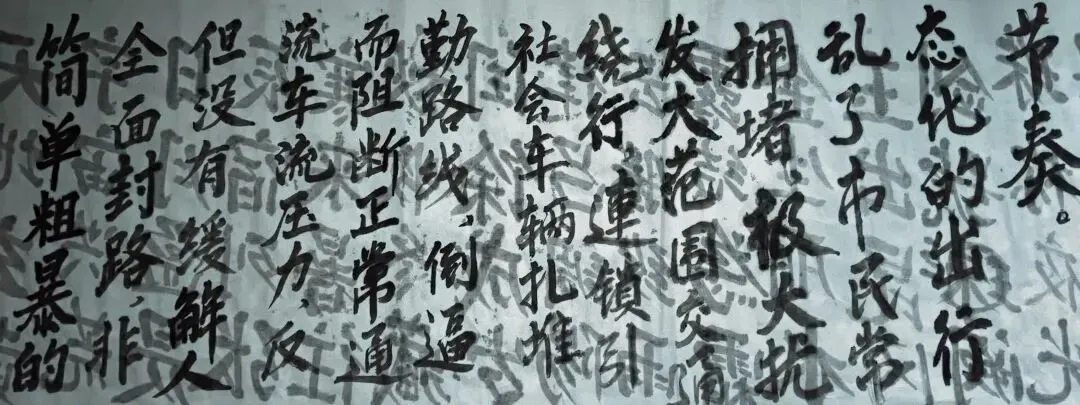 简单粗暴的
全面封路,非
但没有缓解人
流车流压力,反
而阻断正常通
勤路线,倒逼
社会车辆扎堆
绕行連锁引
发大范围交通
拥堵,极大扰
乱了市民常
态化的出行
节奏。